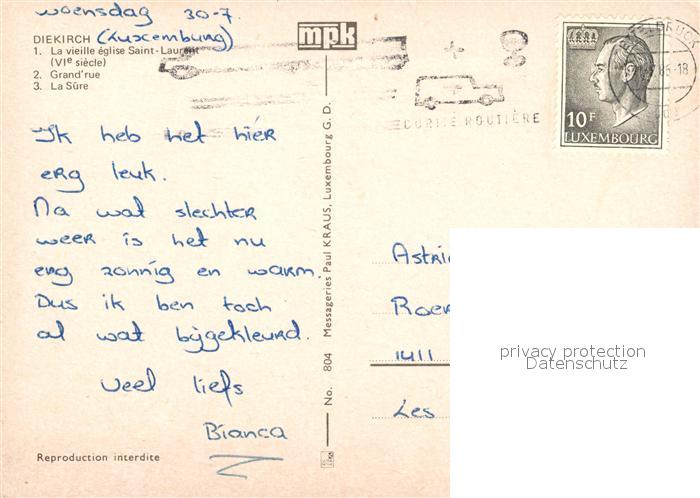 woensdag 30-7.
DIEKIRCH (Luxemburg)
1. La vieille église Saint-Laurent
(VIe siècle)
2. Grand'rue
3. La Sûre
mpk
10F
LUXEMBOURG
SECURITE ROUTIÈRE
Ik heb het hier
erg leuk.
Na wat slechter
weer is het nu
erg zonnig en warm.
Dus ik ben toch
al wat bijgekleurd.
Veel liefs
Bianca
Reproduction interdite
No. 804 Messageries Paul KRAUS, Luxembourg G. D.
1411
Les
privacy protection
Datenschutz